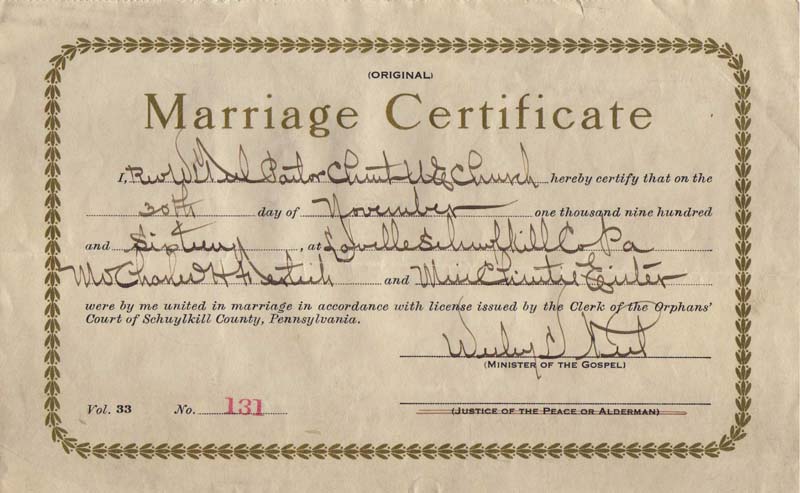 (ORIGINAL)
Marriage Certificate
I, Rev W Neil Pastor Christ U E Church hereby certify that on the
30th day of November one thousand nine hundred
and , at Lavelle Schuylkill Co Pa
Mr Charles H and Miss
were by me united in marriage in accordance with license issued by the Clerk of the Orphans'
Court of Schuylkill County, Pennsylvania.
Wesley Neil
(MINISTER OF THE GOSPEL)
Vol. 33 No. 131
(JUSTICE OF THE PEACE OR ALDERMAN)